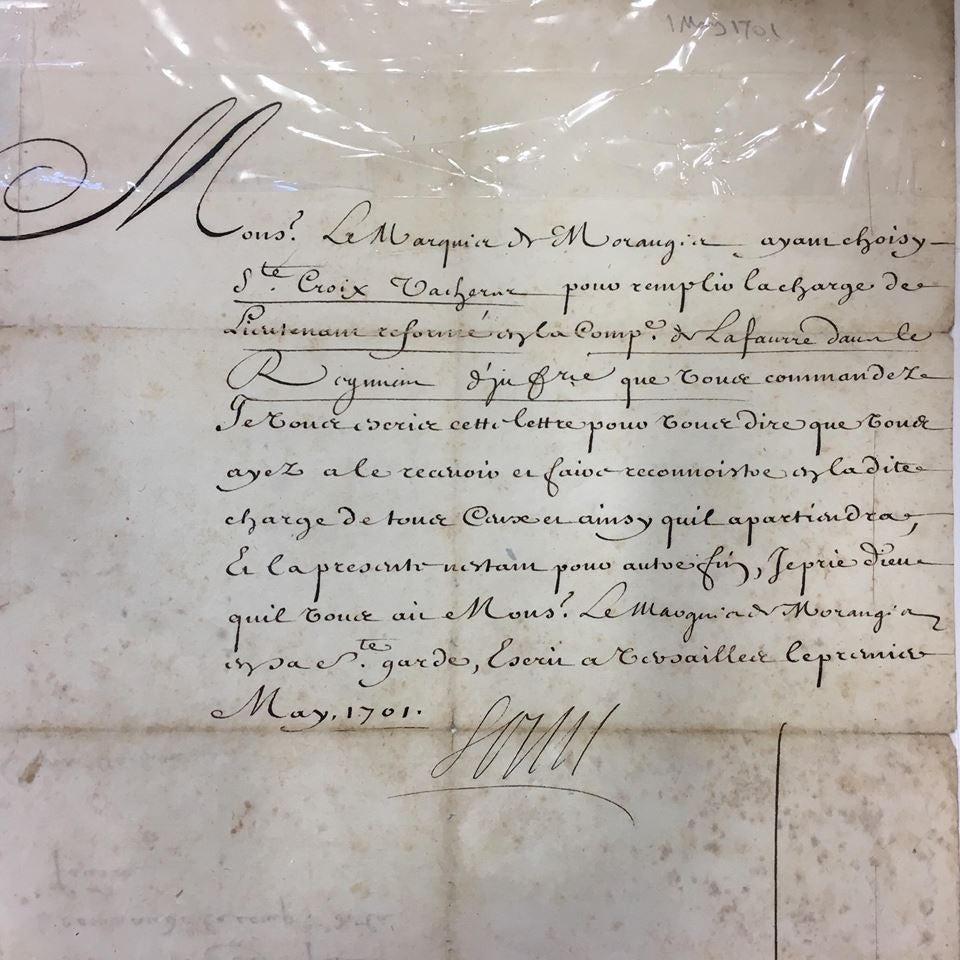 1 May 1701
Mons.r Le Marquis de Morangis ayant choisy
S.te Croix Vacherer pour remplir la charge de
Lieutenant reformé en la Comp.e de Lafaurre dans le
Regiment d'jnf.rie que vous commandez
Je vous escris cette lettre pour vous dire que vous
ayez a le recevoir et faire reconnoistre en la dite
charge de tous Ceux et ainsy quil apartiendra,
Et la presente nestant pour autre fin, Je prie dieu
quil vous ait Mons.r Le Marquis de Morangis
en sa S.te garde, Escrit a Versailles le premier
May, 1701.
Louis